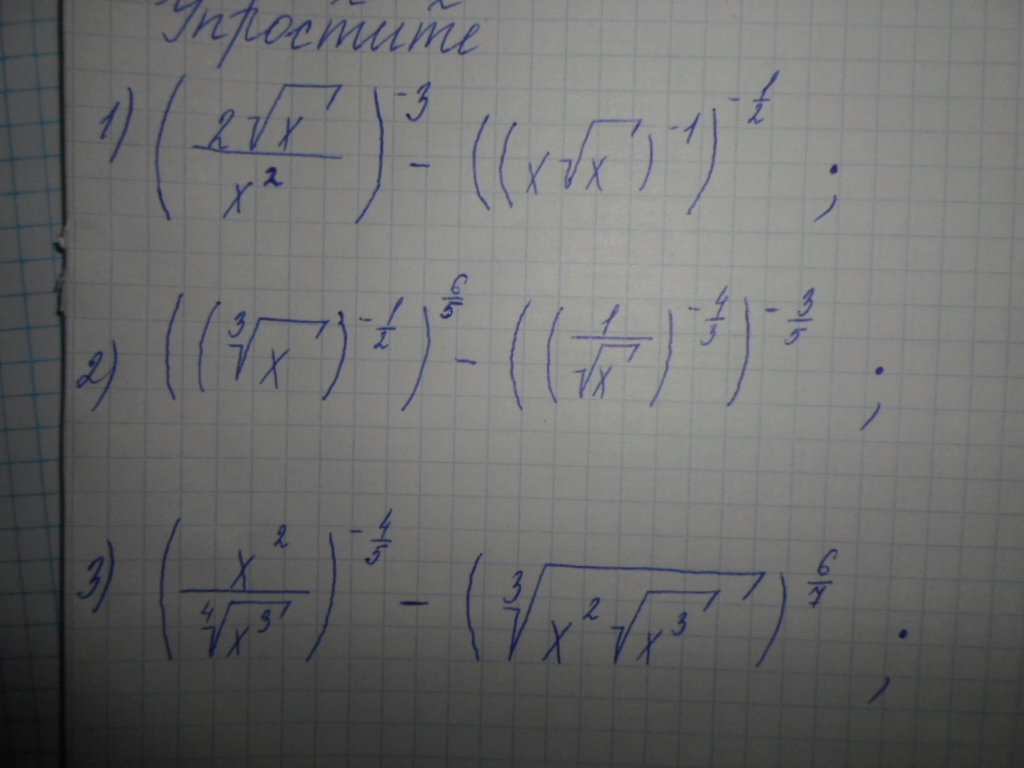 Упростите
1) (2√x / x²)⁻³ − ((x√x)⁻¹)^(-1/2) ;
2) ((∛x)^(-1/2))^(6/5) − ((1/√x)^(-4/3))^(-3/5) ;
3) (x² / ∜(x³))^(-4/5) − (∛(x²√(x³)))^(6/7) ;